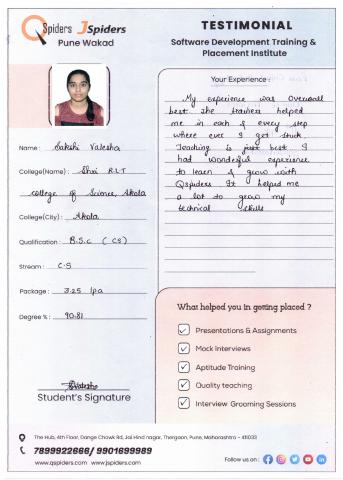 QSpiders JSpiders
Pune Wakad
TESTIMONIAL
Software Development Training &
Placement Institute
Name : Sakshi Valesha
College(Name) : Shri R.L.T
college of Science, Akola
College(City) : Akola
Qualification : B.S.c ( CS )
Stream : C.S
Package : 3.25 lpa
Degree % : 90.81
Student's Signature
Your Experience :
My experience was Overall
best. The trainer helped
me in each & every step
where ever I get stuck.
Teaching is just best I
had wonderful experience
to learn & grow with
Qspiders It helped me
a lot to grow my
technical skills
What helped you in getting placed ?
Presentations & Assignments
Mock Interviews
Aptitude Training
Quality teaching
Interview Grooming Sessions
The Hub, 4th Floor, Dange Chowk Rd, Jai Hind nagar, Thergaon, Pune, Maharashtra - 411033
7899922666/ 9901699989
www.qspiders.com www.jspiders.com
Follow us on :